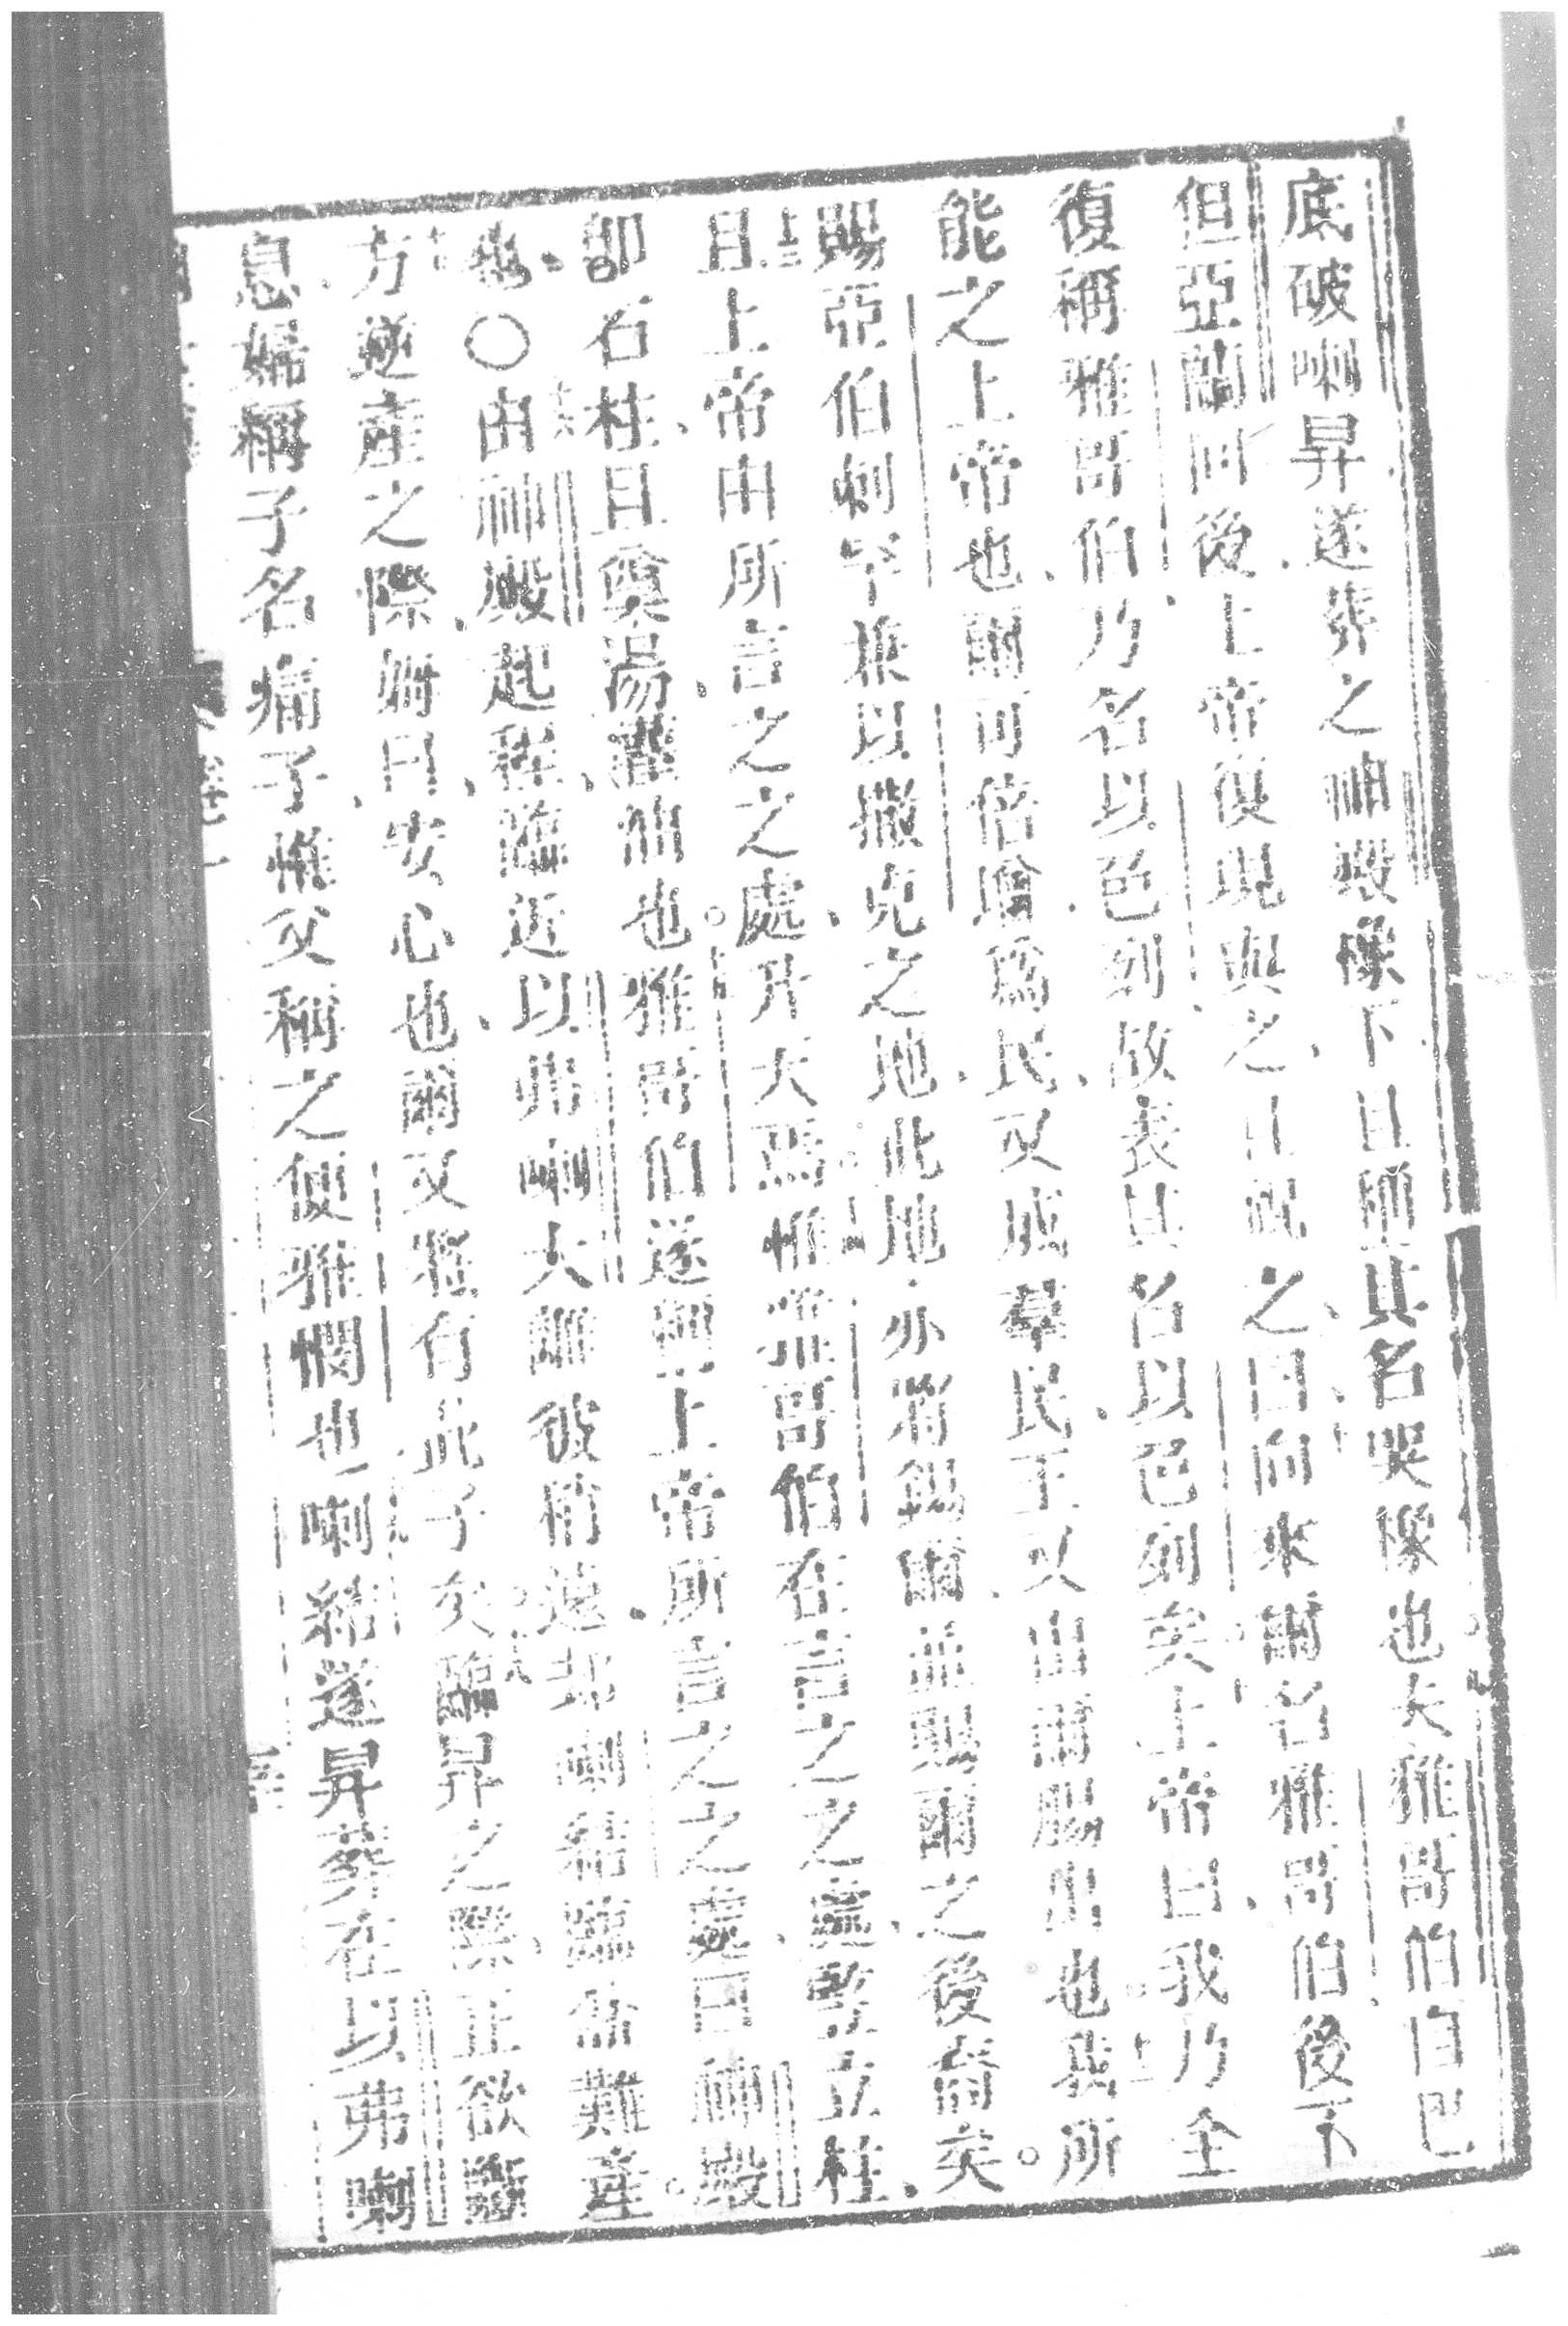 底破喇昇遂葬之神殿櫟下且稱其名哭櫟也夫雅哥伯自巴
但亞蘭回後上帝復現與之且祝之曰向來爾名雅哥伯後不
復稱雅哥伯乃名以色列故表其名以色列矣上帝曰我乃全
能之上帝也爾可倍增為民又成羣民王又由爾腸出也我所
賜亞伯剌罕兼以撒克之地此地亦將錫爾並賜爾之後裔矣
且上帝由所言之之處升天焉惟雅哥伯在言之之處竪立柱
即石柱且奠湯灌油也雅哥伯遂稱上帝所言之之處曰神殿
也〇由神殿起程臨近以弗喇大離彼稍遠却喇結臨昇難產
方逆產之際媽曰安心也爾又將有此子矣臨昇之際正欲斷
息婦稱子名痛子惟父稱之便雅憫也喇結遂昇葬在以弗喇